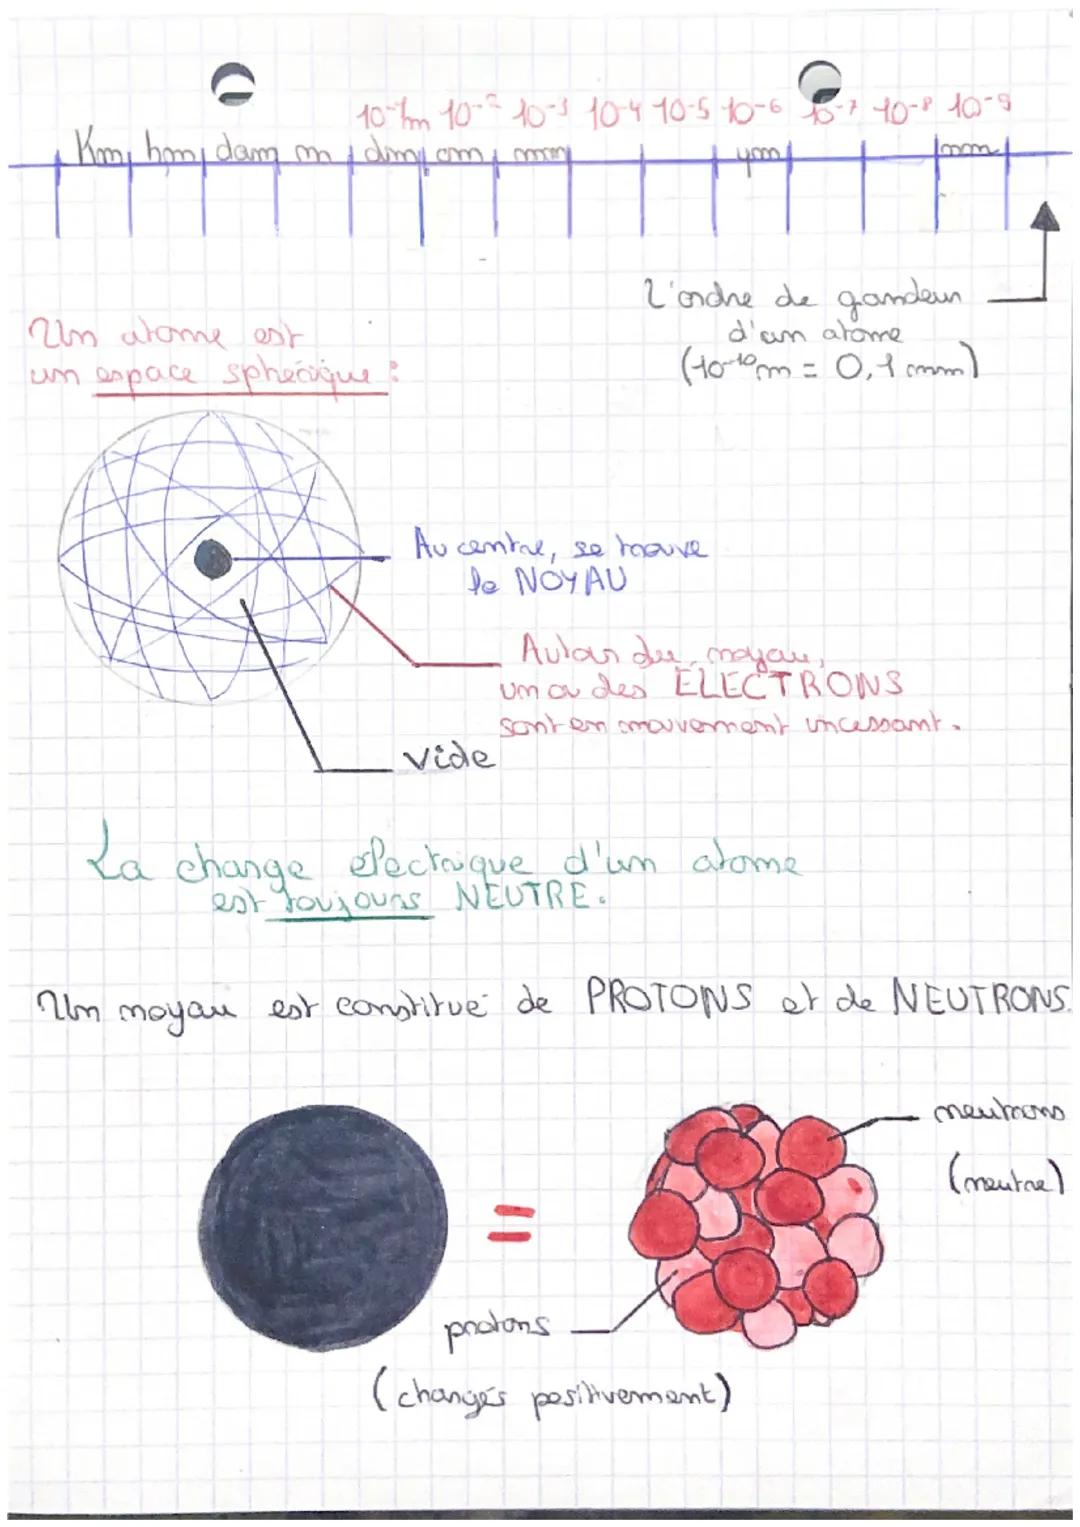 10-1m 10-2 10-3 10-4 10-5 10-6 10-7 10-8 10-9
Km hm dam m dm cm mm μm nm
L'ordre de gandeur
d'un atome
(10-10m = 0,1 nm)
Un atome est
un espace sphérique :
Au centre, se trouve
le NOYAU
Autour du noyau,
un ou des ELECTRONS
sont en mouvement incessant.
Vide
La charge électrique d'un atome
est toujours NEUTRE.
Un noyau est constitué de PROTONS et de NEUTRONS.
neutrons
(neutre)
=
protons
(chargés positivement)